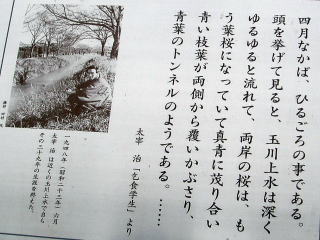 四月なかば、ひるごろの事である。
頭を挙げて見ると、玉川上水は深く
ゆるゆると流れて、両岸の桜は、も
う葉桜になっていて真青に茂り合い
青い枝葉が両側から覆いかぶさり、
青葉のトンネルのようである。……
太宰 治「乞食学生」より
一九四八年(昭和二十三年)六月
太宰 治 は近くの玉川上水で自ら
その三十九年の生涯を終えた。